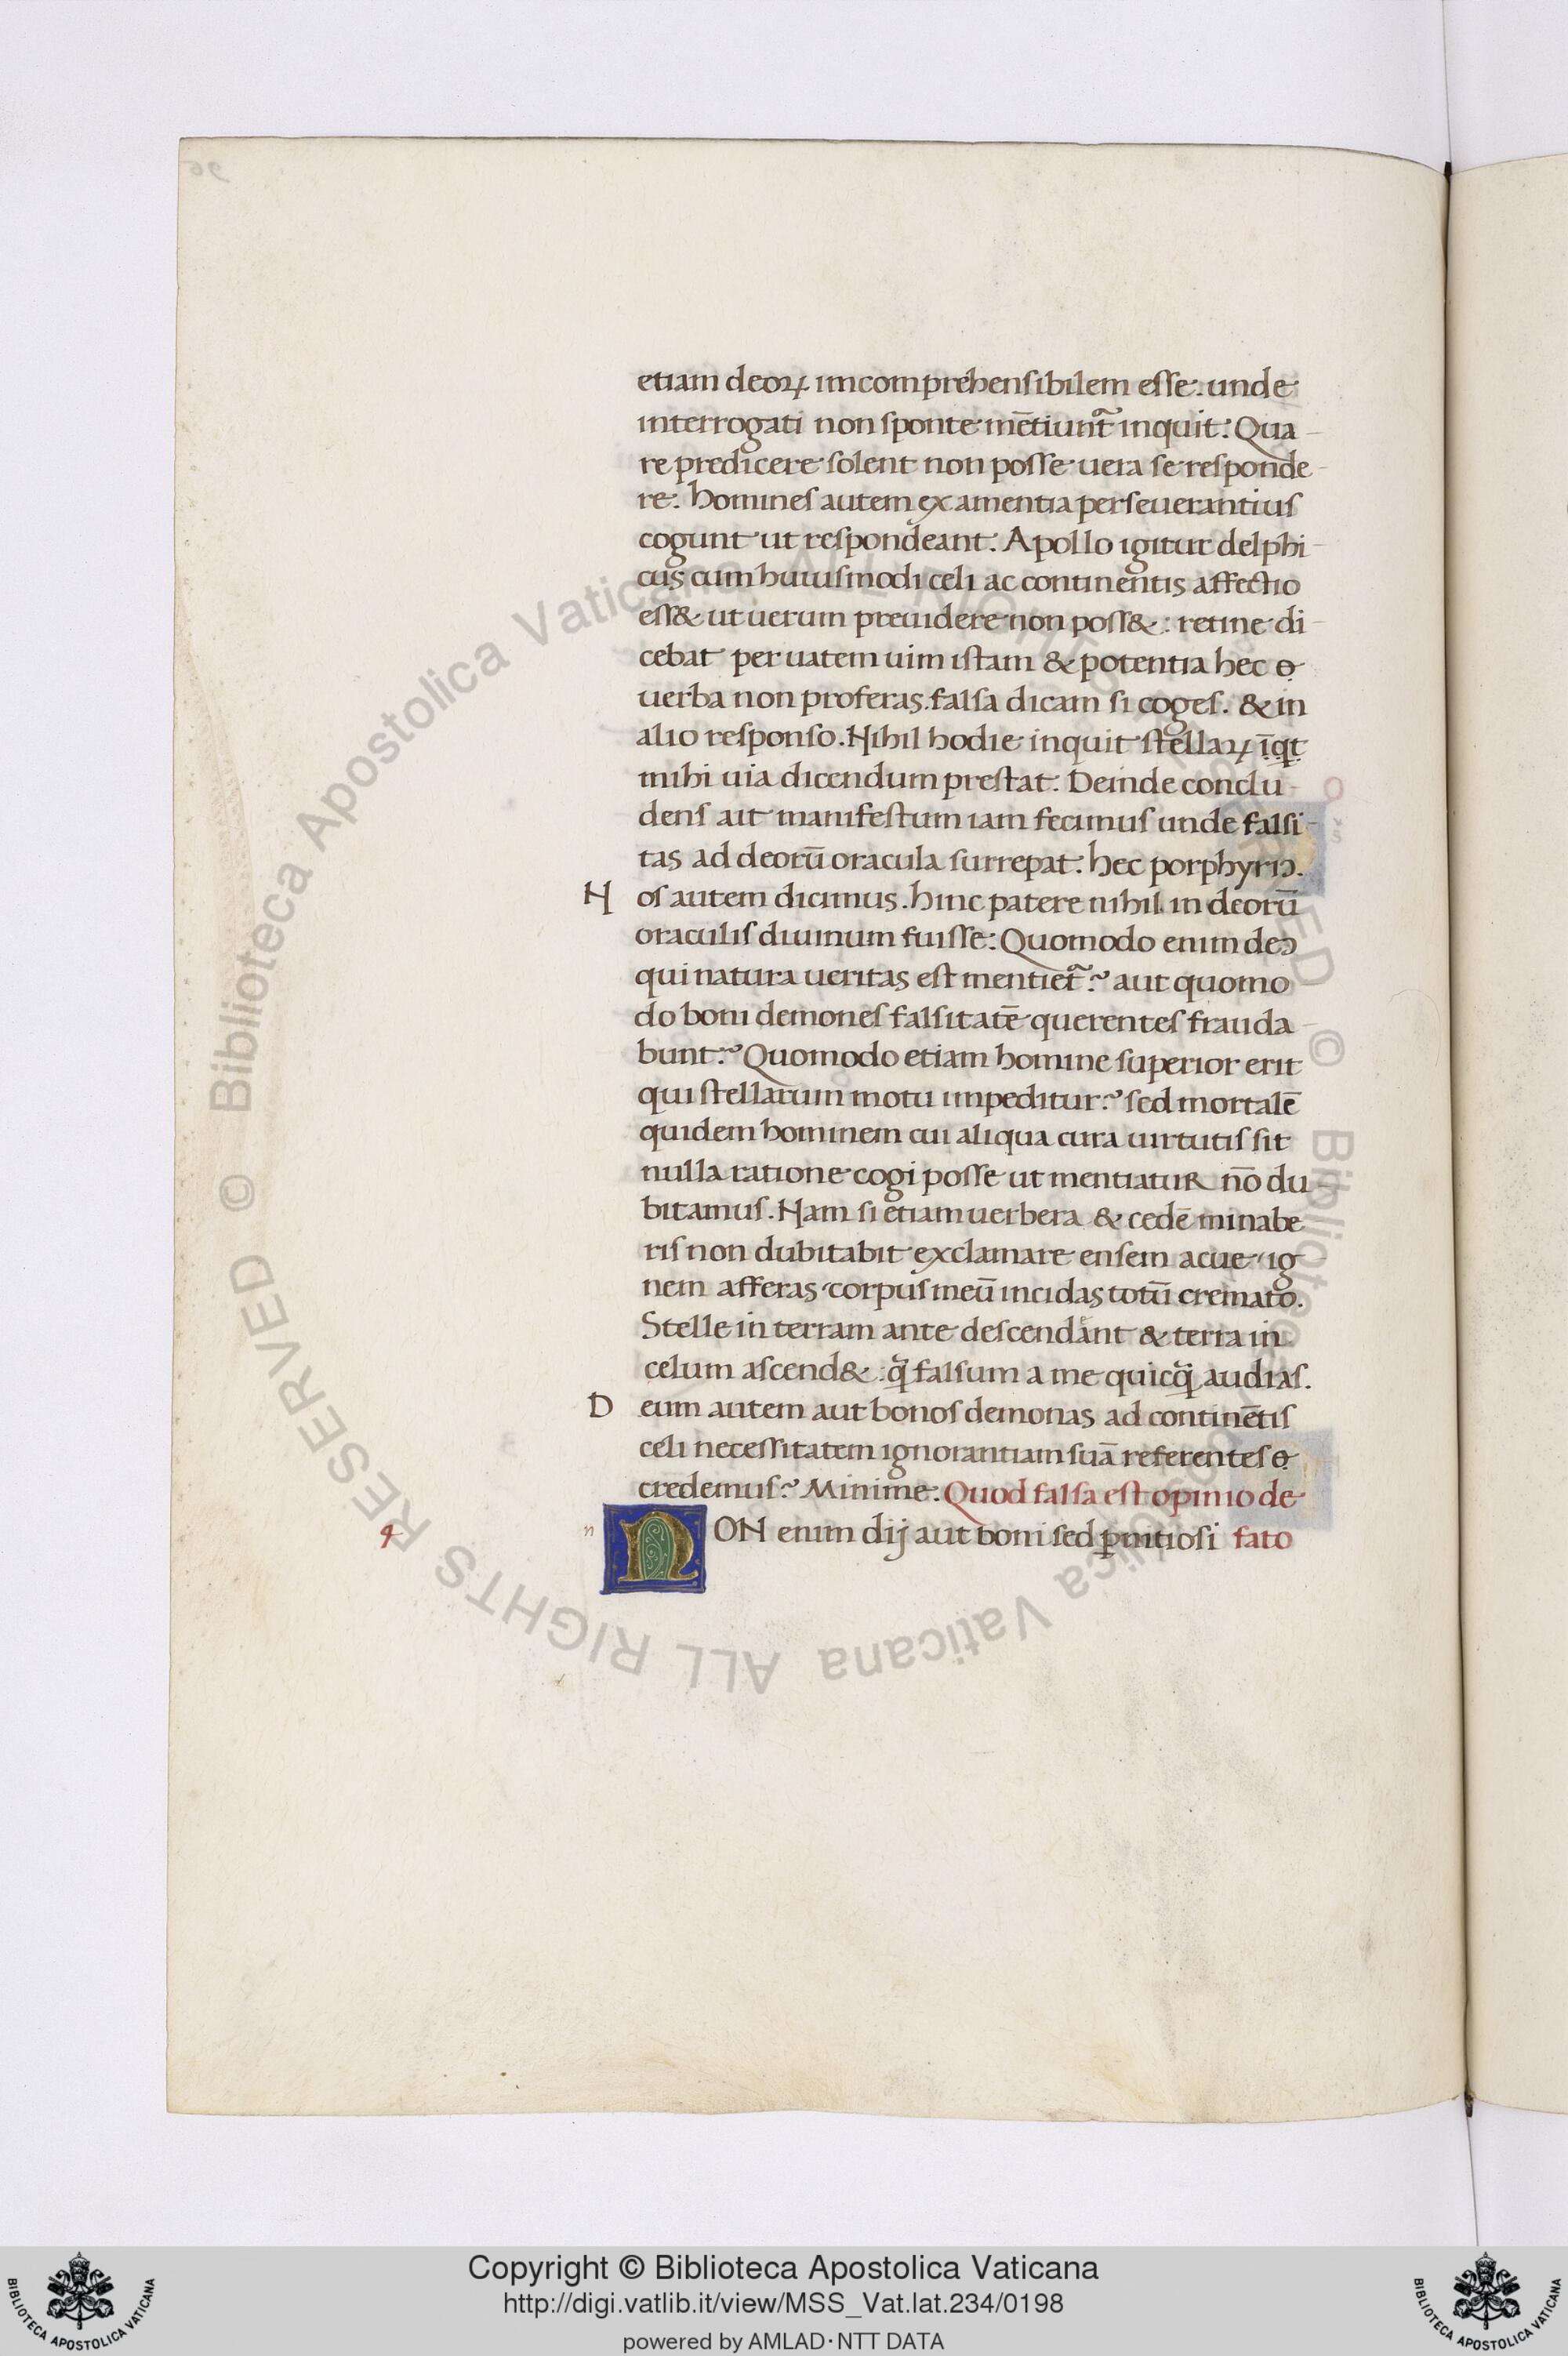 etiam deoꝝ imcomprehensibilem esse. unde
interrogati non sponte mētiunt᷑ inquit: Qua-
re predicere solent non posse uera se responde-
re. homines autem ex amentia perseuerantius
cogunt ut respondeant. Apollo igitur delphi-
cus cum huiusmodi celi ac continentis affectio
ess& ut uerum preuidere non poss&: retine di-
cebat per uatem uim istam & potentia hec o
uerba non proferas. falsa dicam si coges. & in
alio responso. Nihil hodie inquit stellaꝝ īqt
mihi uia dicendum prestat. Deinde conclu-
dens ait manifestum iam fecimus unde falsi-
tas ad deorū oracula surrepat. hec porphyriꝰ.
Nos autem dicimus. hinc patere nihil in deorū
oraculis diuinum fuisse: Quomodo enim deꝰ
qui natura ueritas est mentiet᷑? aut quomo
do boni demones falsitatē querentes frauda-
bunt? Quomodo etiam homine superior erit
qui stellarum motu impeditur? sed mortalē
quidem hominem cui aliqua cura uirtutis sit
nulla ratione cogi posse ut mentiatur nō du-
bitamus. Nam si etiam uerbera & cedē minabe
ris non dubitabit exclamare ensem acue ig
nem afferas corpus meū incidas totū cremato.
Stelle in terram ante descendant & terra in
celum ascend&: qᷓ falsum a me quicqᷓ audias.
Deum autem aut bonos demonas ad continētis
celi necessitatem ignorantiam suā referentes o
credemus? Minime: Quod falsa est opinio de
NON enim dij aut boni sed ꝑnitiosi fato
Copyright © Biblioteca Apostolica Vaticana
http://digi.vatlib.it/view/MSS_Vat.lat.234/0198
powered by AMLAD·NTT DATA
BIBLIOTECA APOSTOLICA VATICANA
BIBLIOTECA APOSTOLICA VATICANA
© Biblioteca Apostolica Vaticana ALL RIGHTS RESERVED © Biblioteca Apostolica Vaticana ALL RIGHTS RESERVED